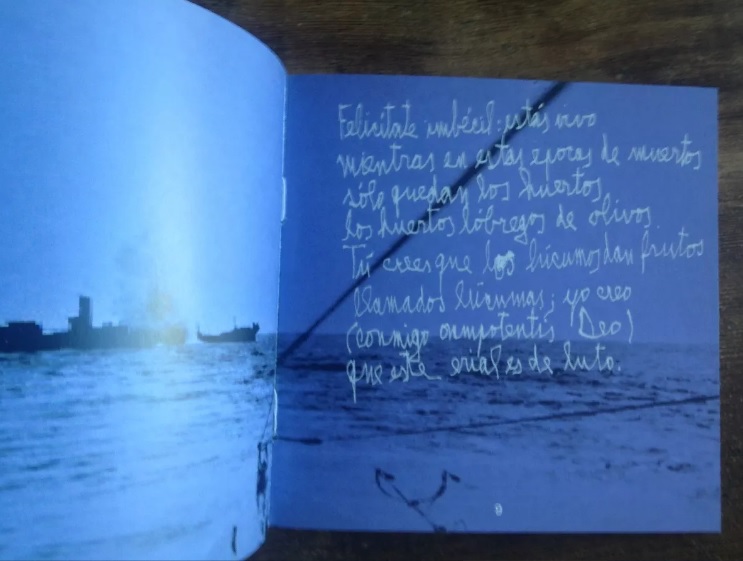 Felicítate imbécil: estás vivo
mientras en estas epocas de muertos
sólo quedan los huertos,
los huertos lóbregos de olivos.
Tú crees que los lúcumos dan frutos
llamados lúcumas; yo creo
(conmigo omnipotentis Deo)
que este erial es de luto.
9